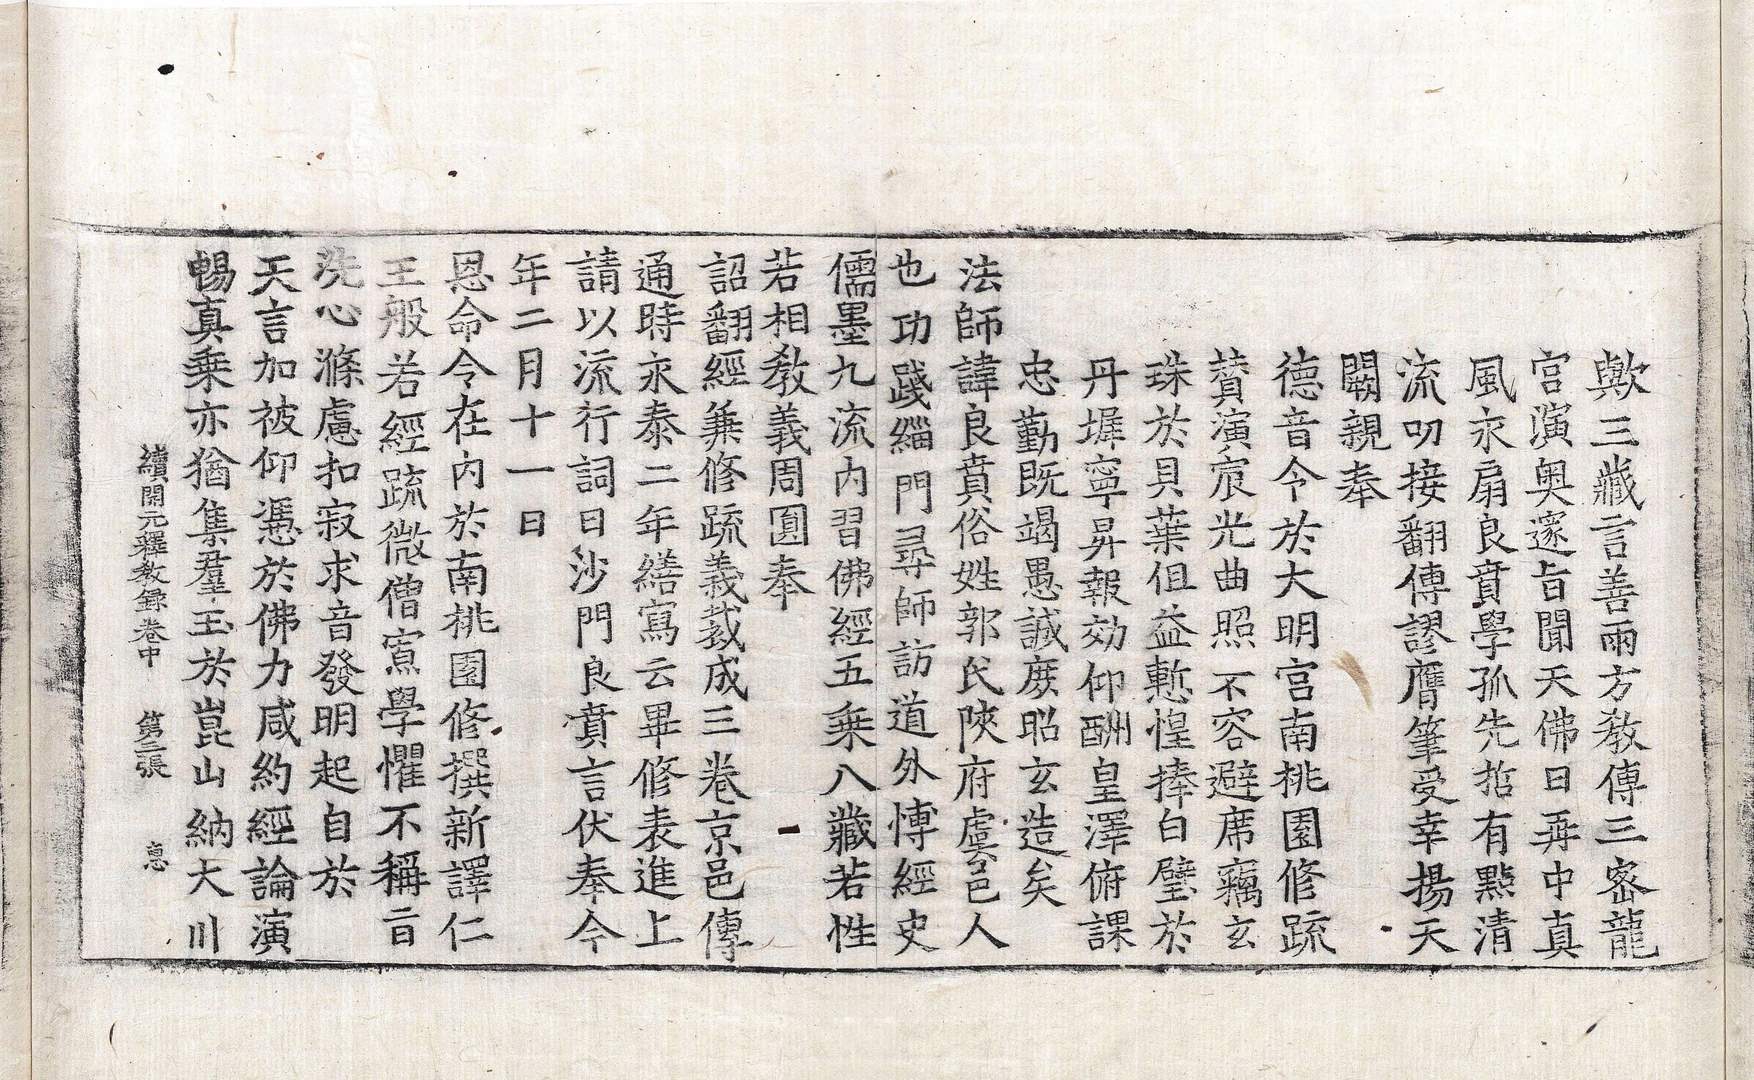 歟三藏言善兩方教傳三密龍
宮演奧邃旨聞天佛日再中真
風永扇良賁學孤先哲有點清
流叨接翻傳謬膺筆受幸揚天
闕親奉
德音令於大明宮南桃園修疏
賛演宸光曲照不容避席竊玄
珠於貝葉但益慙惶捧白璧於
丹墀寧昇報効仰酬皇澤俯課
忠勤既竭愚誠庶昭玄造矣
法師諱良賁俗姓郭氏陝府虞邑人
也功踐緇門尋師訪道外博經史
儒墨九流內習佛經五乘八藏若性
若相教義周圓奉
詔翻經兼修疏義裁成三卷京邑傳
通時永泰二年繕寫云畢修表進上
請以流行詞曰沙門良賁言伏奉今
年二月十一日
恩命令在內於南桃園修撰新譯仁
王般若經疏微僧寡學懼不稱旨
洗心滌慮扣寂求音發明起自於
天言加被仰憑於佛力咸約經論演
暢真乘亦猶集羣玉於崑山納大川
續開元釋教錄卷中　第二張　惠